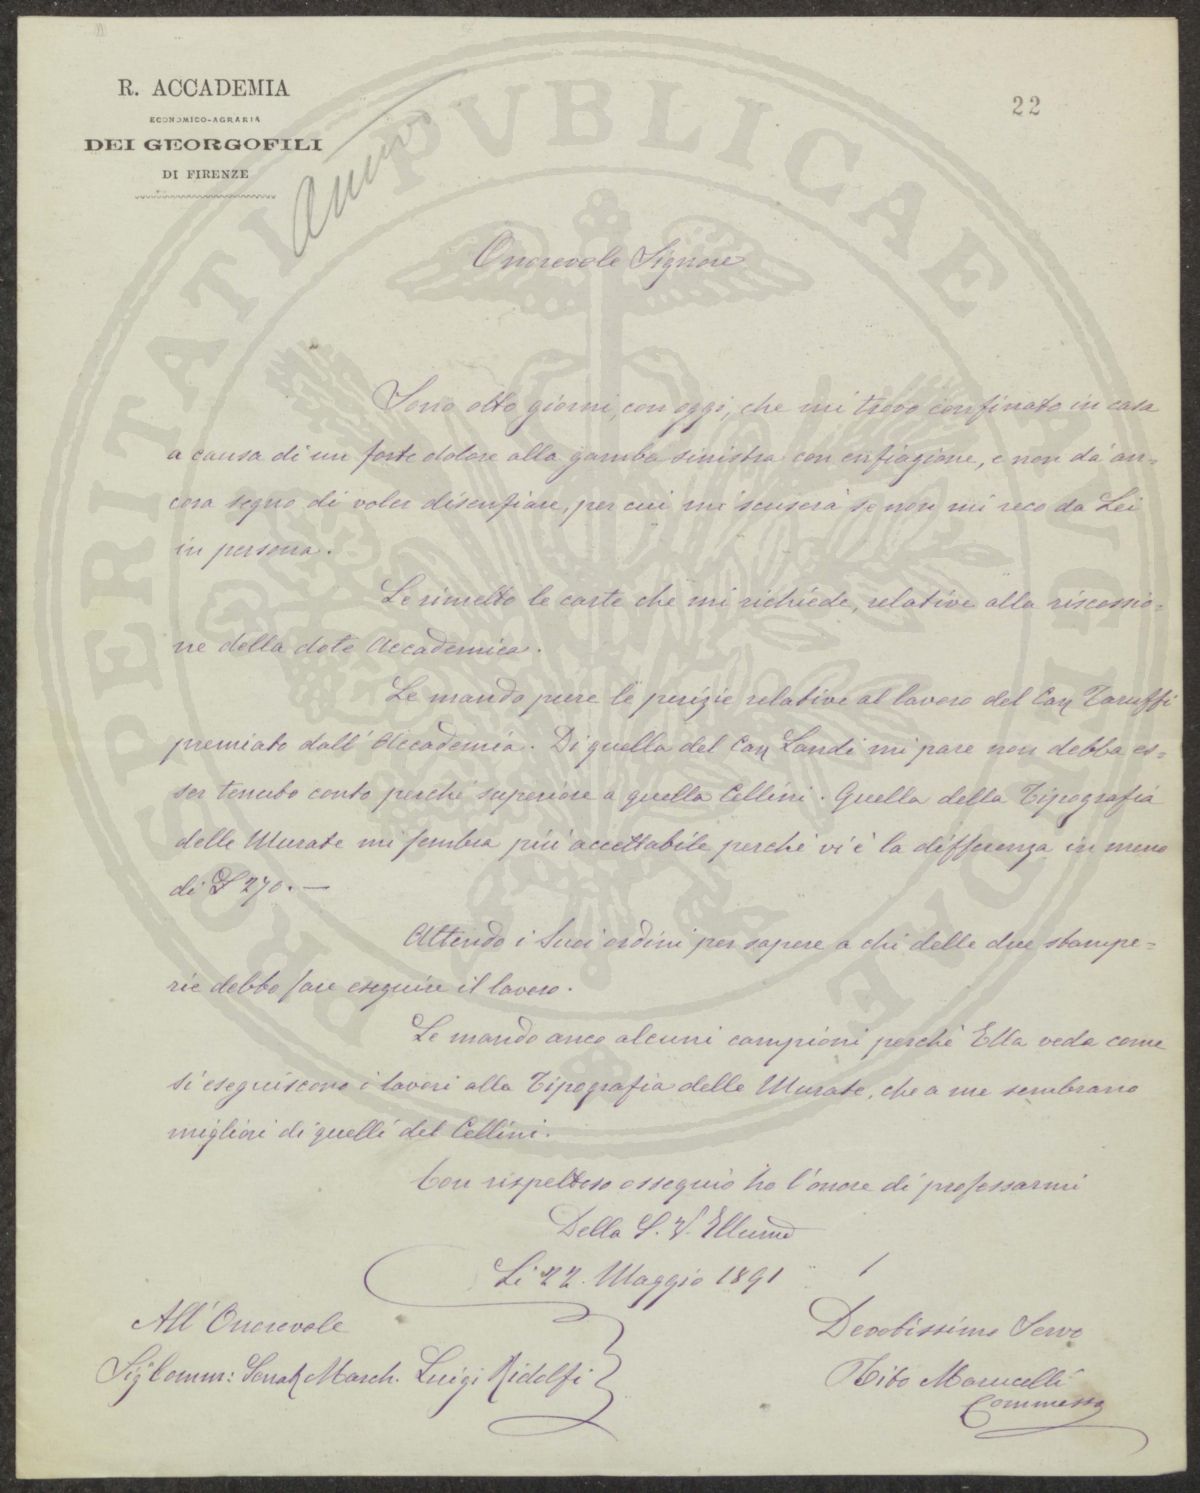 R. ACCADEMIA
ECONOMICO-AGRARIA
DEI GEORGOFILI
DI FIRENZE
22
PROSPERITATI PVBLICAE AVGENDAE
Onorevole Signore
Sono otto giorni, con oggi, che mi trovo confinato in casa
a causa di un forte dolore alla gamba sinistra con enfiagione, e non dà an=
cora segno di voler disenfiare, per cui mi scuserà se non mi reco da Lei
in persona.
Le rimetto le carte che mi richiede, relative alla riscossio=
ne della dote Accademica.
Le mando pure le perizie relative al lavoro del Cav Taruffi
premiato dall'Accademia. Di quella del Cav Landi mi pare non debba es=
ser tenuto conto perché superiore a quella Cellini. Quella della Tipografia
delle Murate mi sembra più accettabile perché vi è la differenza in meno
di £ 270. —
Attendo i Suoi ordini per sapere a chi delle due stampe=
rie debbo fare eseguire il lavoro.
Le mando anco alcuni campioni perché Ella veda come
si eseguiscono i lavori alla Tipografia delle Murate, che a me sembrano
migliori di quelli del Cellini.
Con rispettoso ossequio ho l'onore di professarmi
Della S. V. Illuma
Li 22. Maggio 1891
All'Onorevole
Sig Comm: Senat March. Luigi Ridolfi
Devotissimo Servo
Tito Marucelli
Commesso